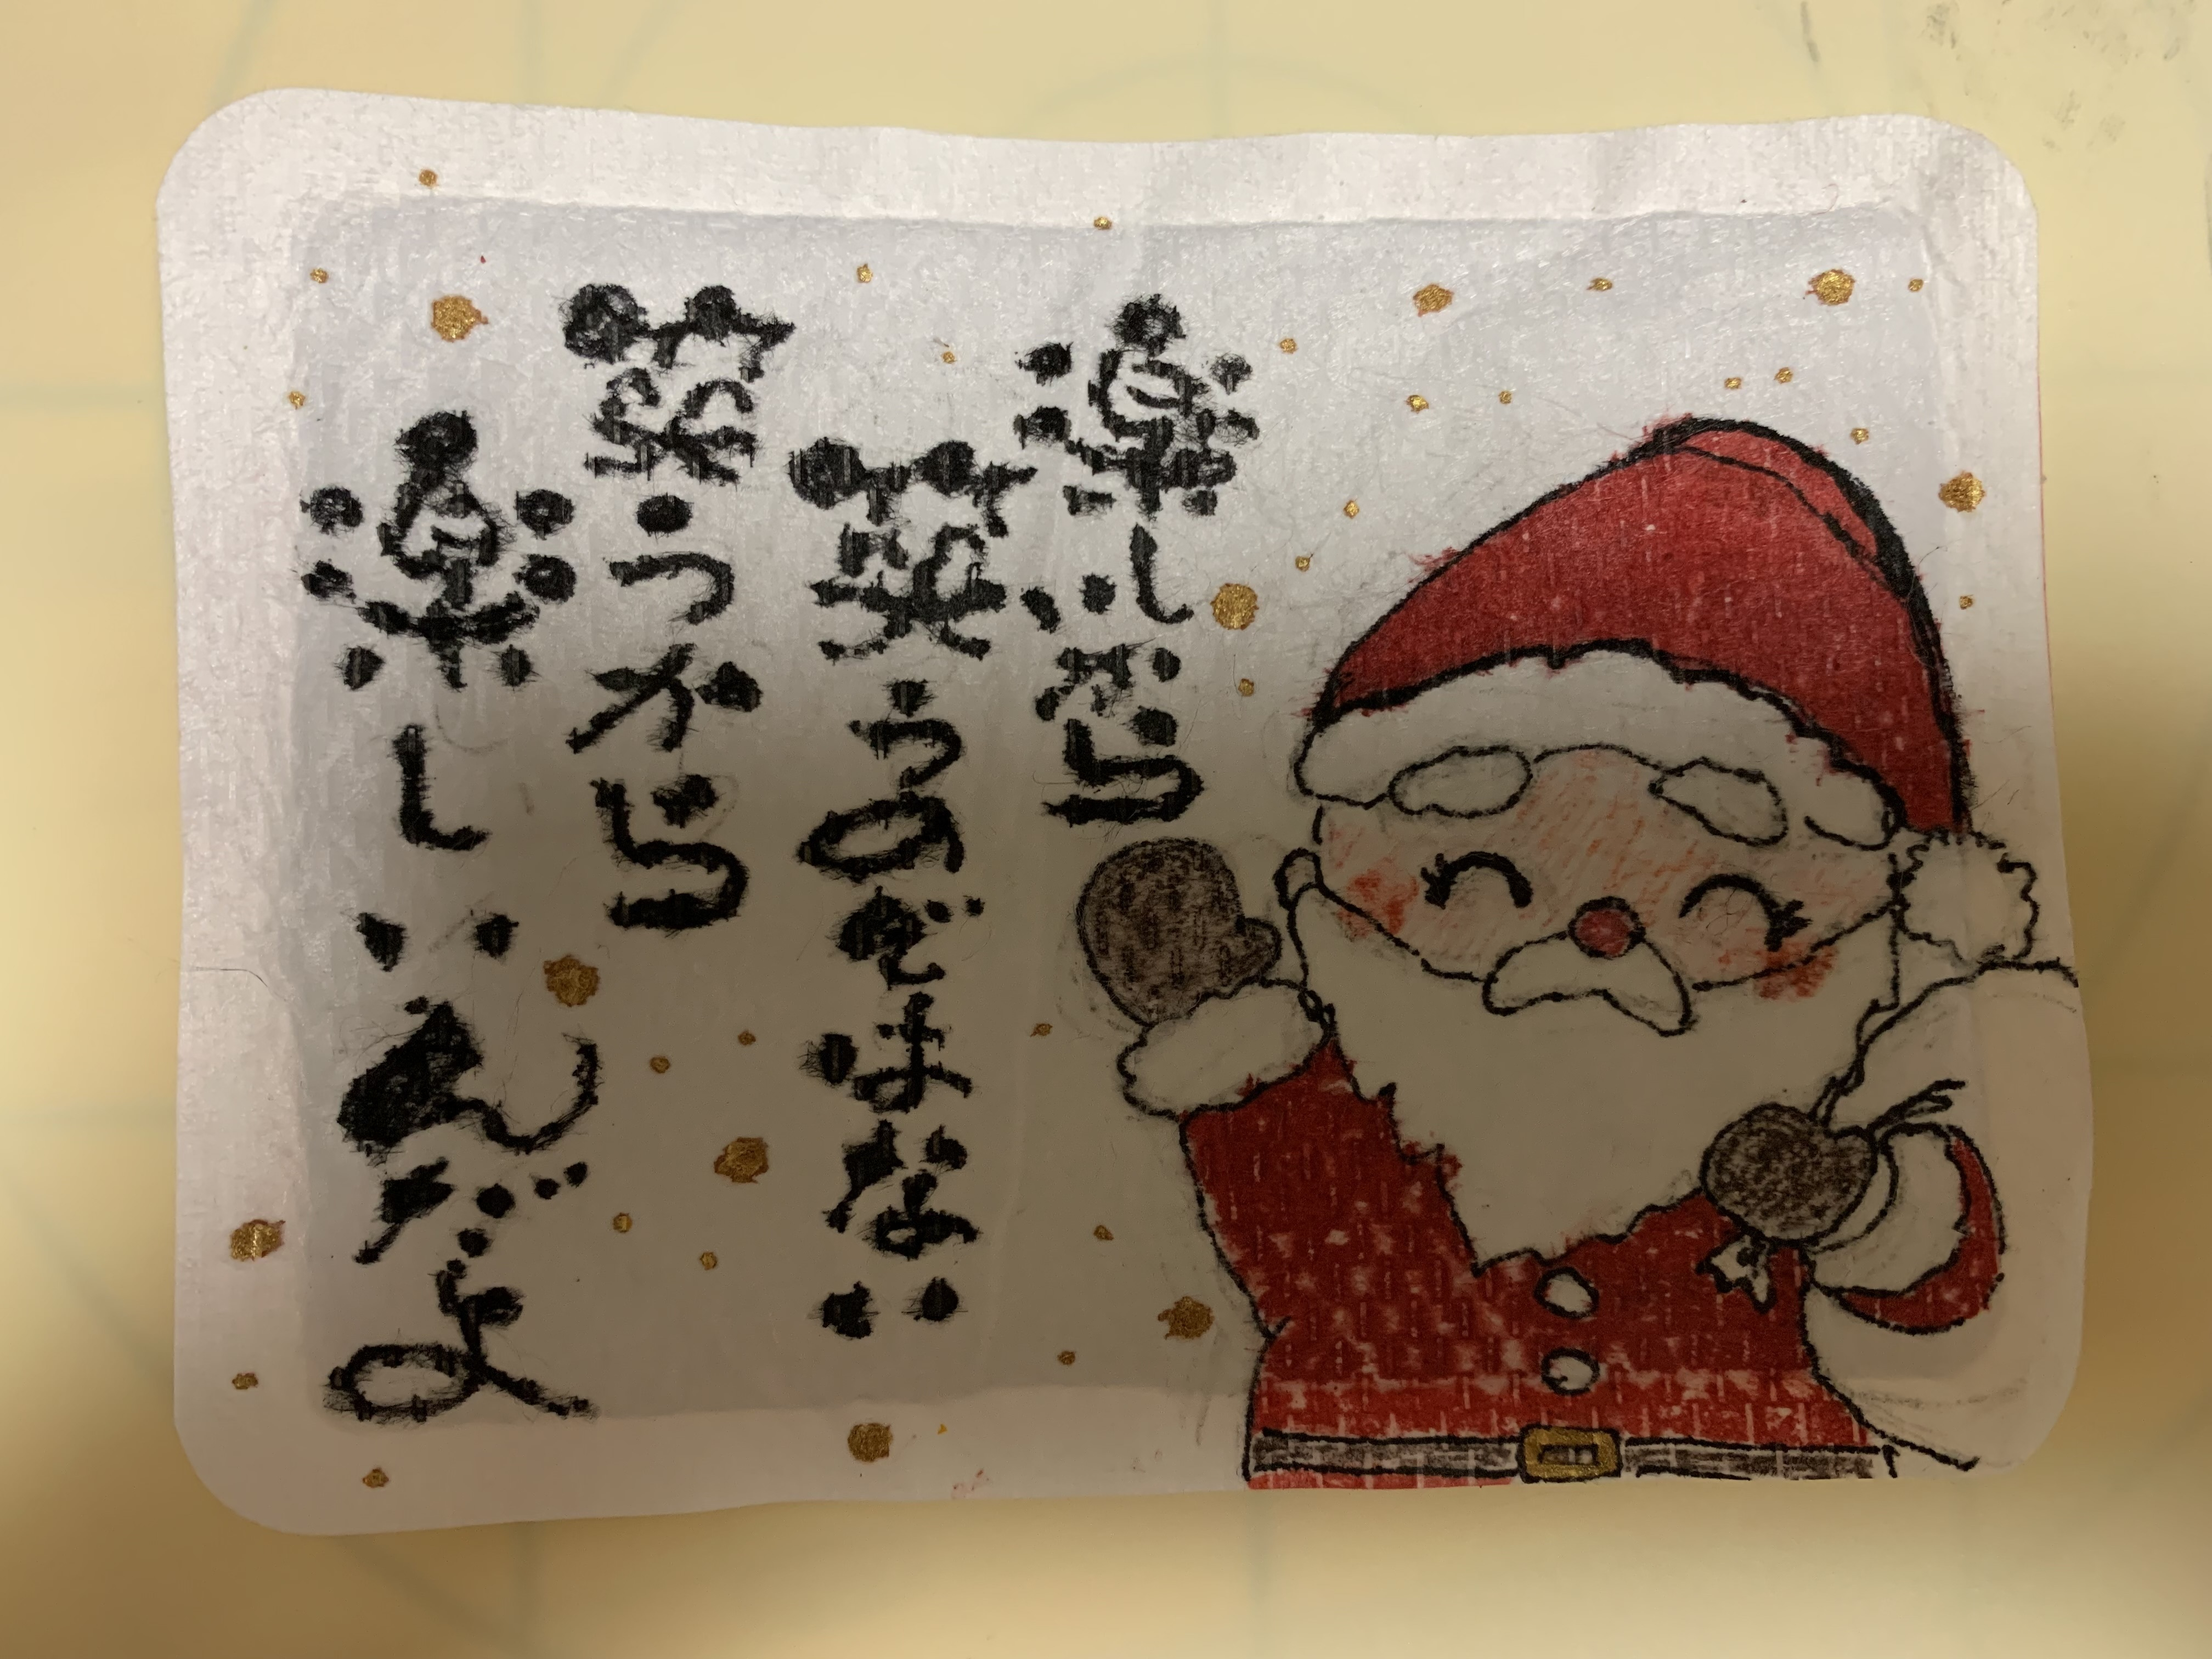 楽しいから
笑うのではない
笑うから
楽しいんだよ